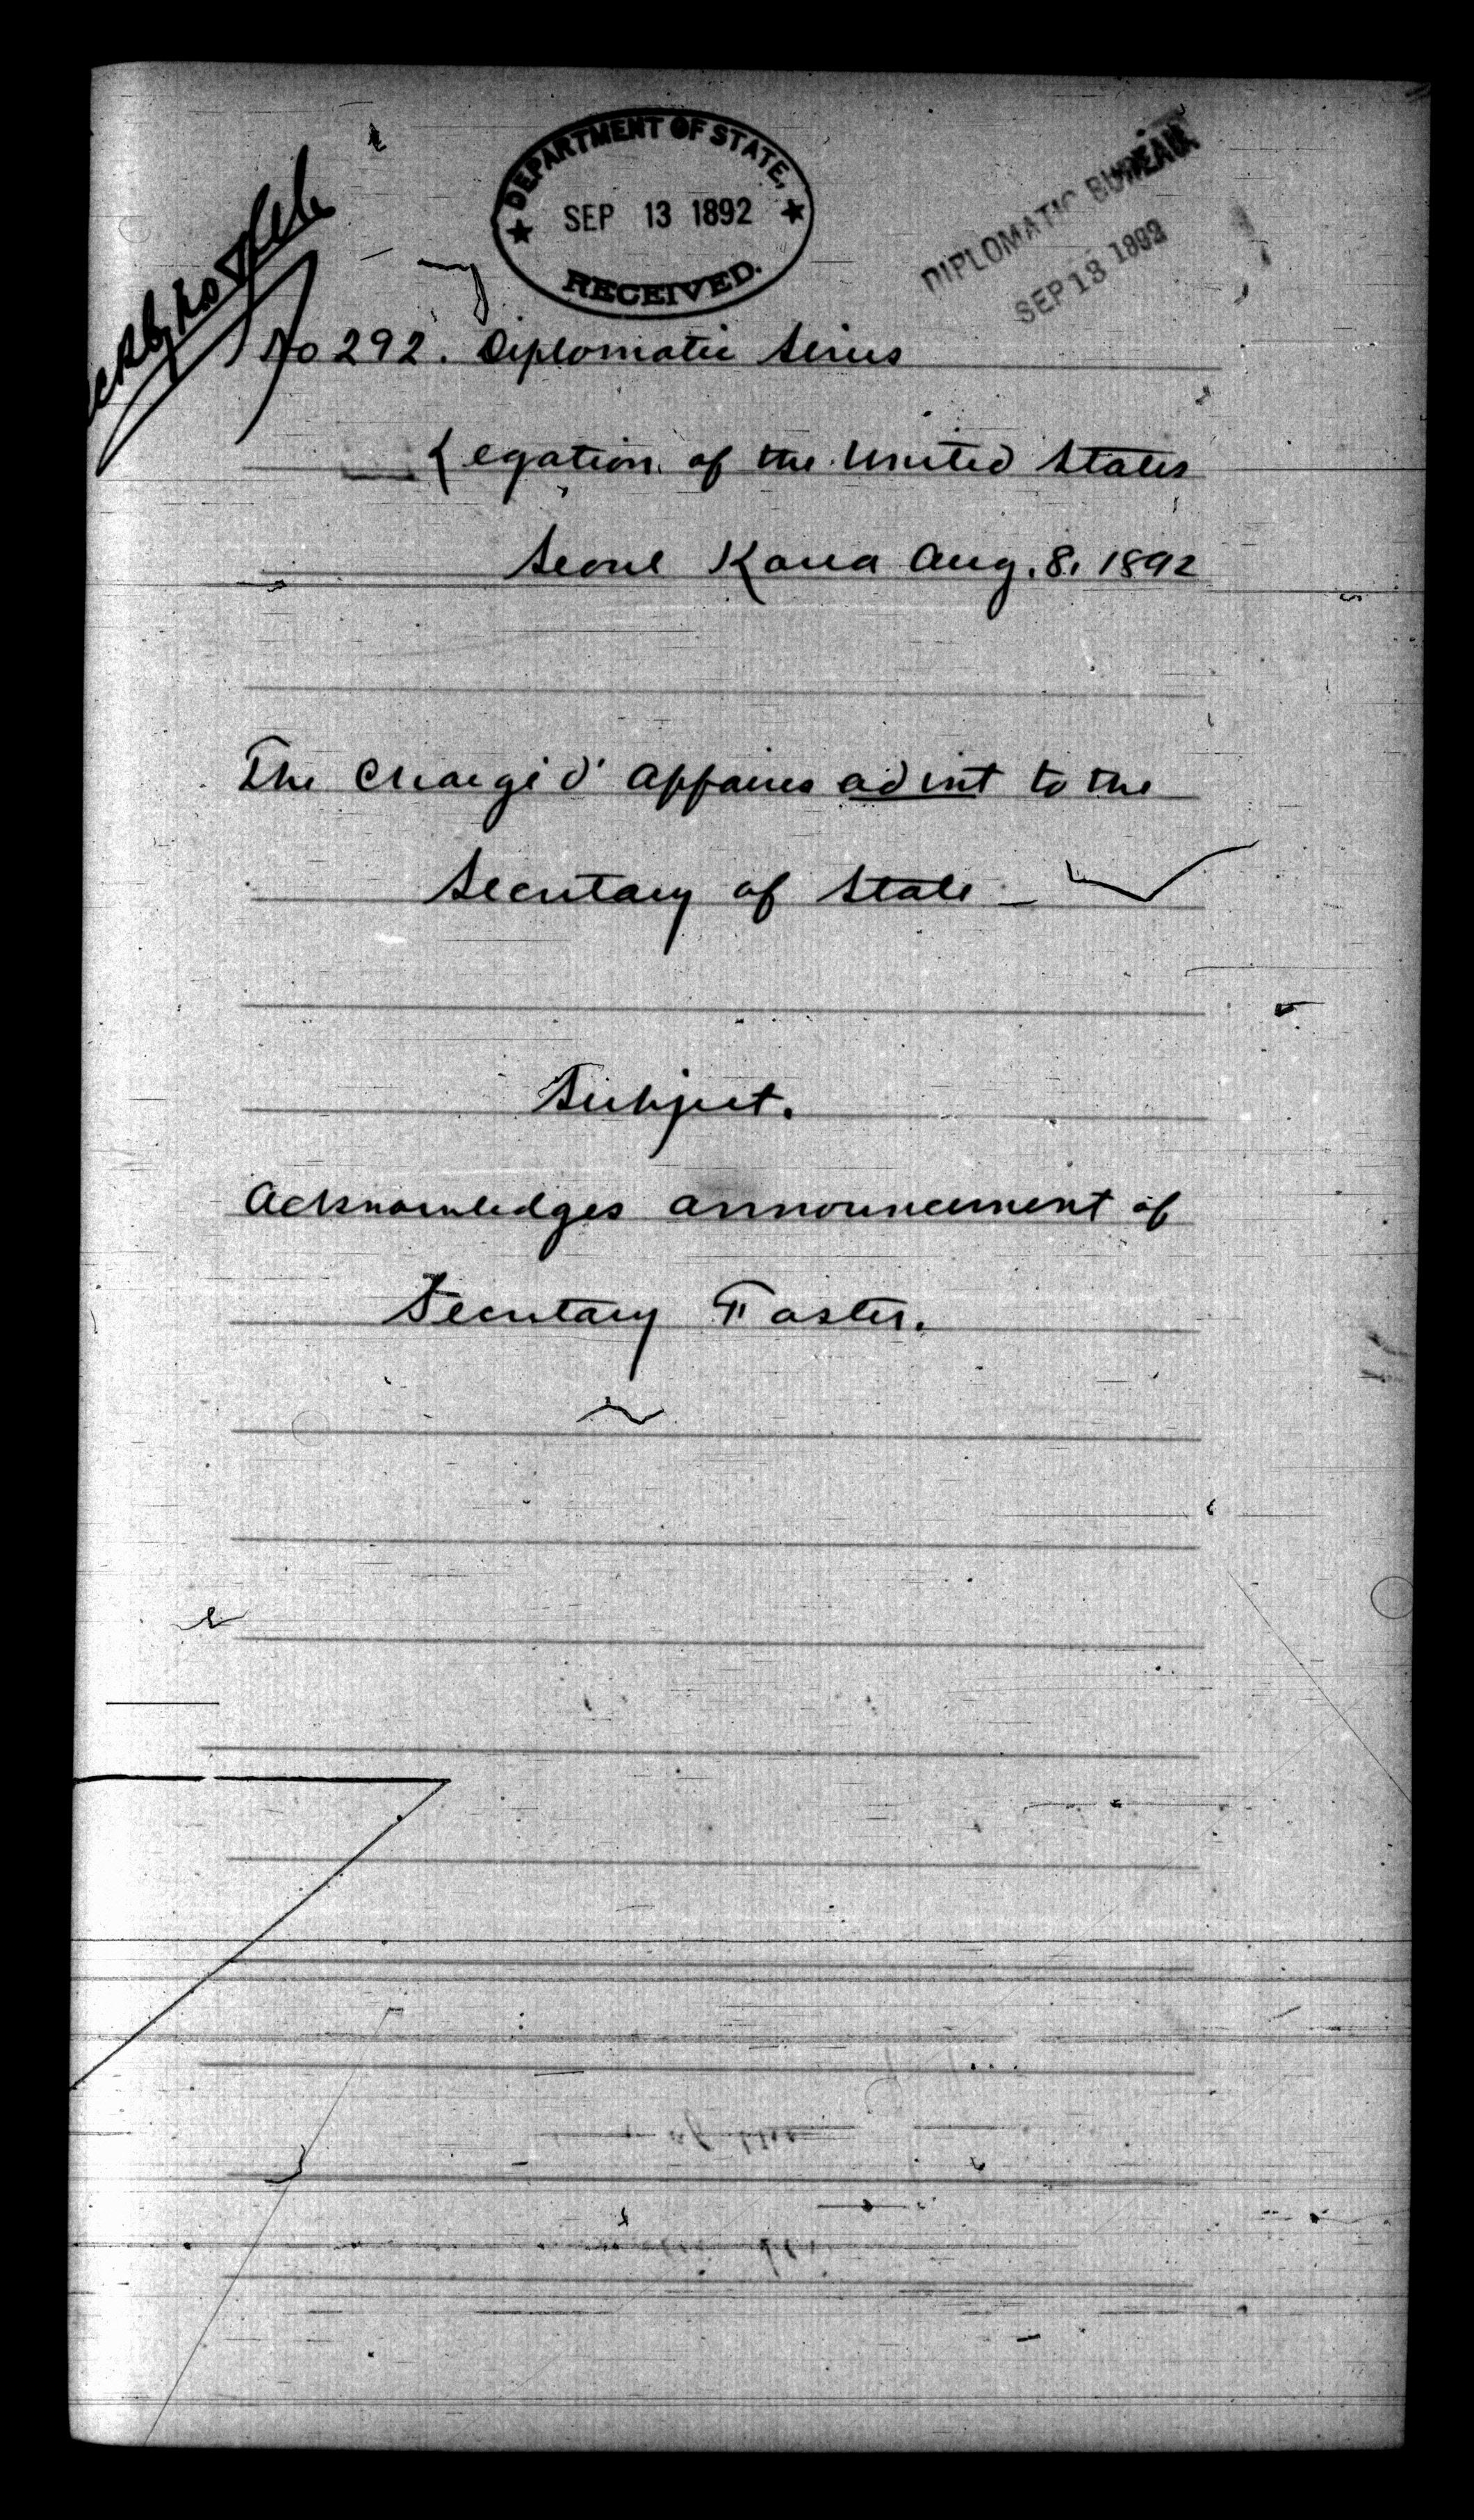 DEPARTMENT OF STATE,
SEP 13 1892
RECEIVED.
DIPLOMATIC BUREAU
SEP 13 1892
No 292. Diplomatic Series
Legation of the United States
Seoul Korea Aug. 8, 1892
The Chargé d' Affaires ad int to the
Secretary of State -
Subject.
Acknowledges announcement of
Secretary Foster.